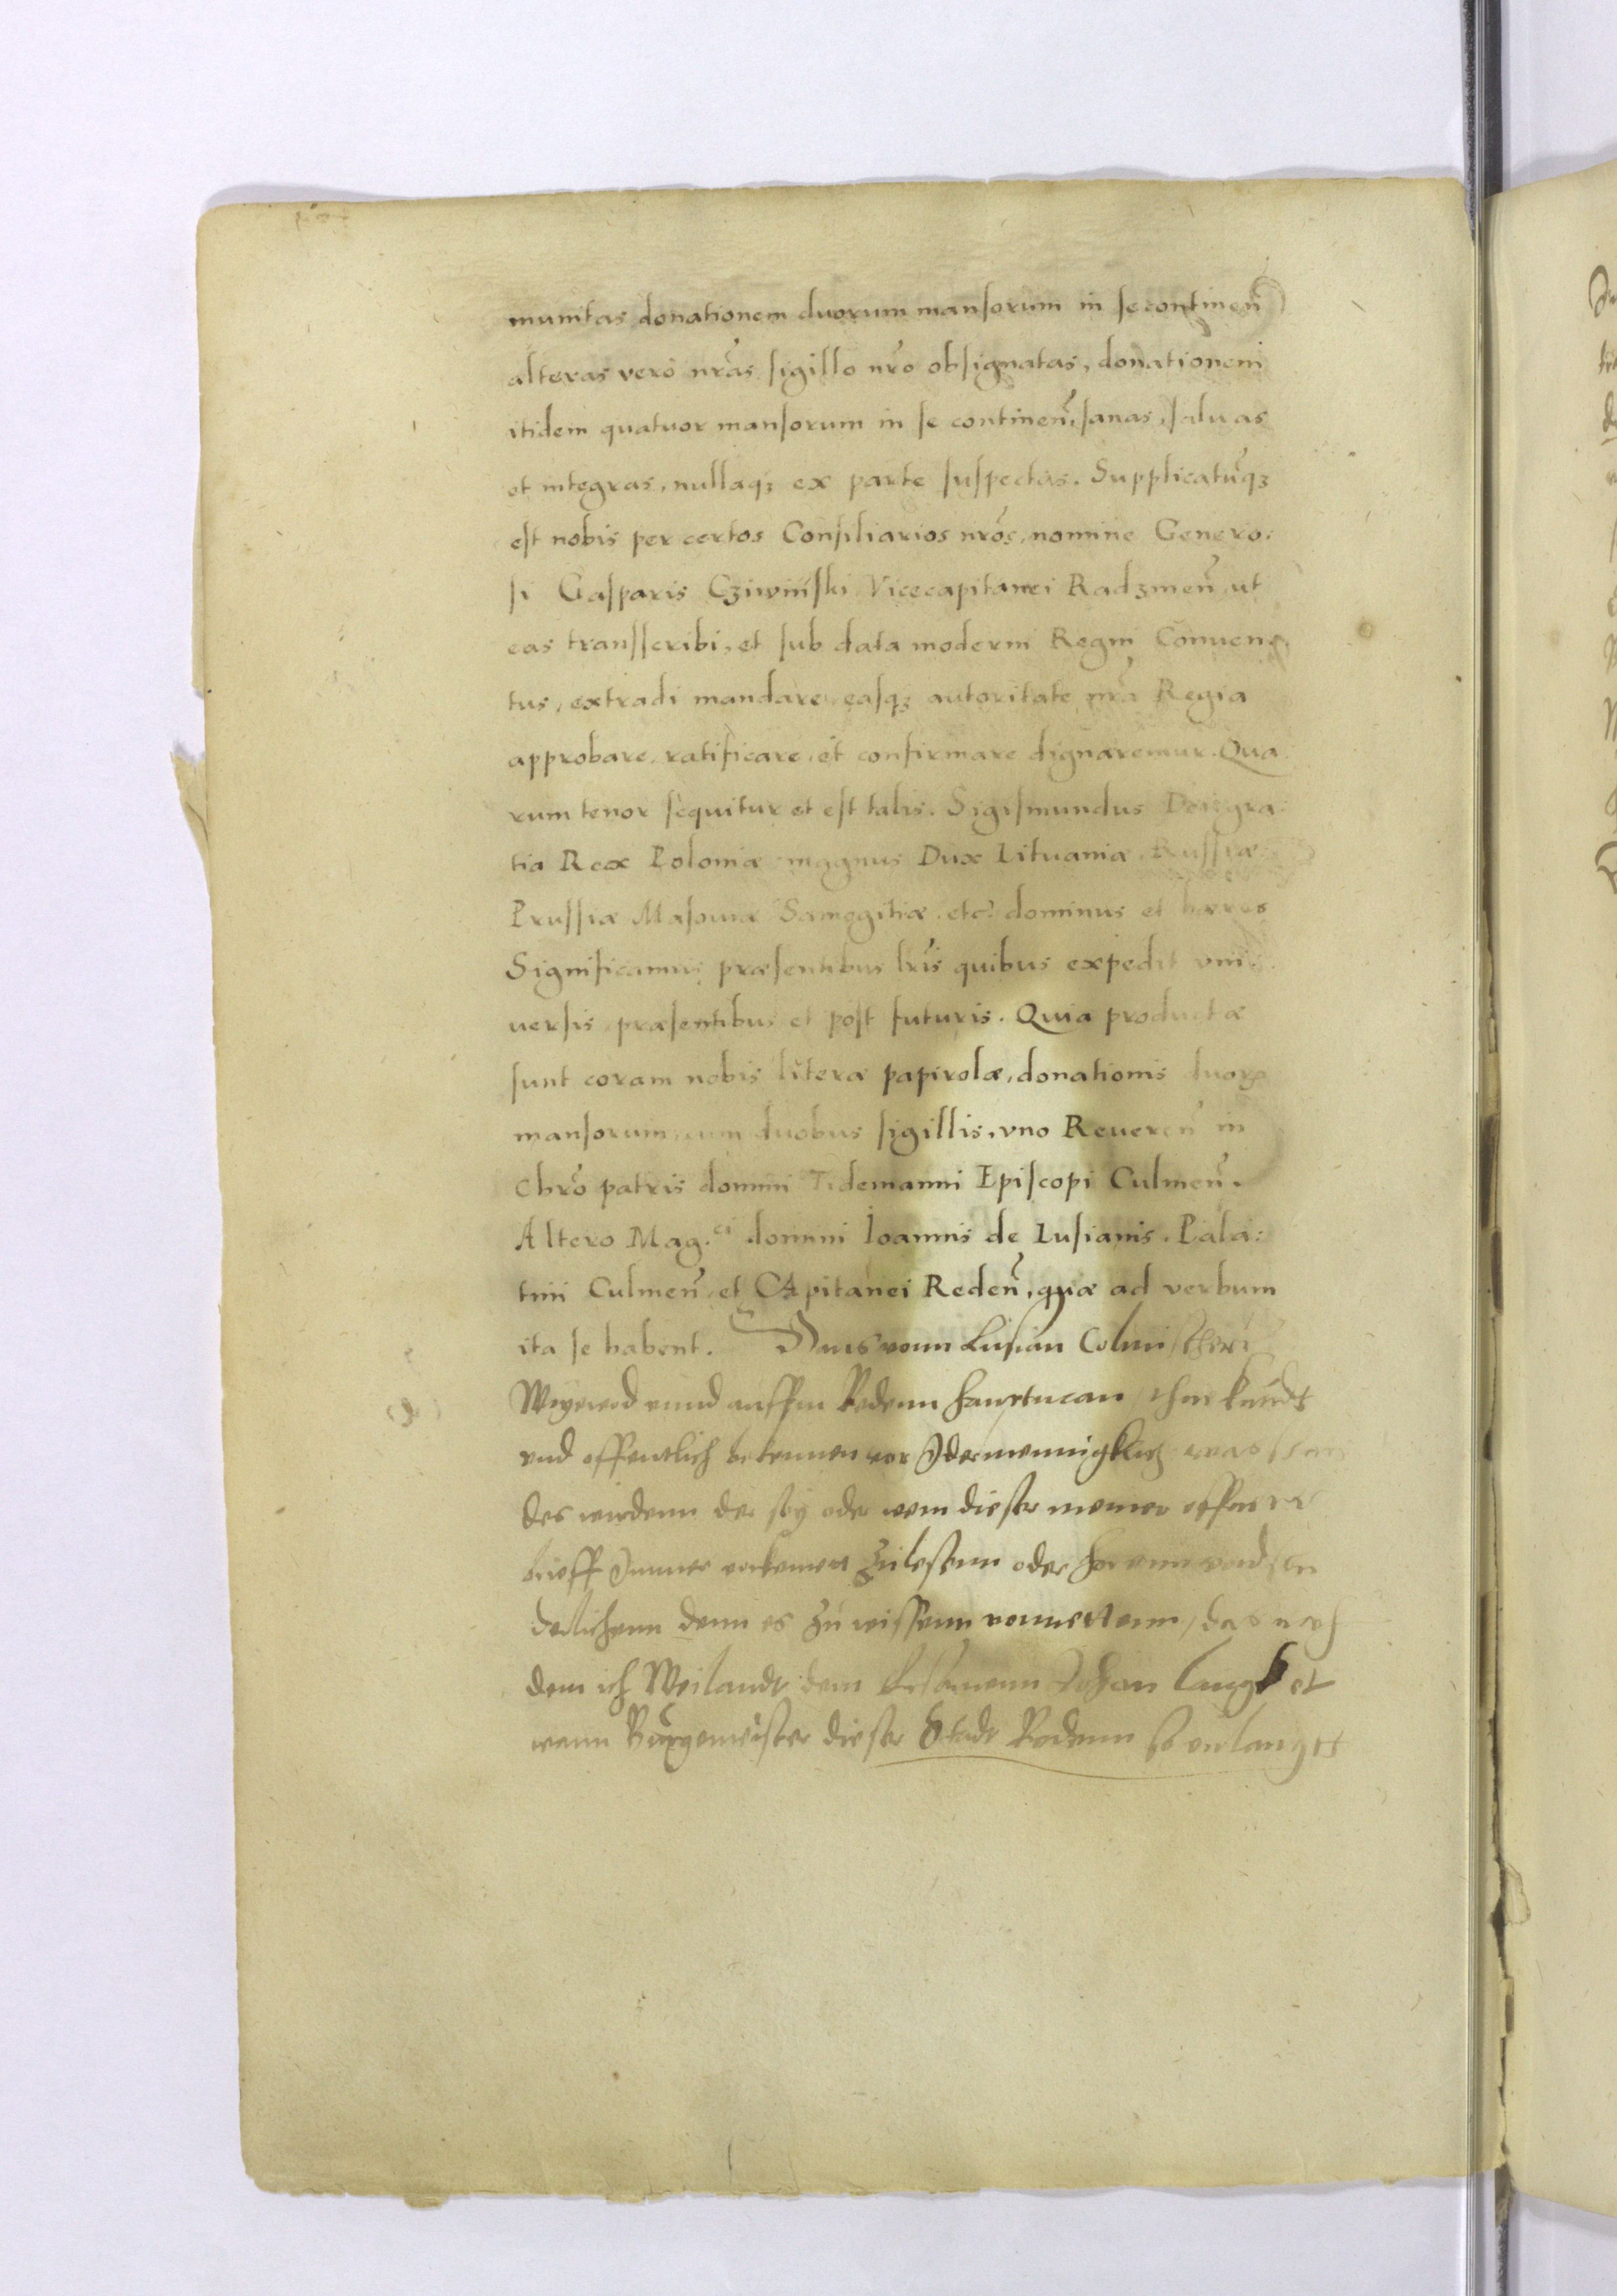 munitas donationem duorum mansorum in se continen̄
alteras vero nr̄as sigillo nr̄o obsignatas, donationem
itidem quatuor mansorum in se continen̄, sanas, saluas
et integras, nullaqꝫ ex parte suspectas. Supplicatūqꝫ
est nobis per certos Consiliarios nr̄os, nomine Genero:
si Gasparis Cziwiński Vicecapitanei Radzmen̄ ut
eas transscribi, et sub data moderni Regni Conuen
tus, extradi mandare, easqꝫ autoritate nr̄a Regia
approbare, ratificare, et confirmare dignaremur. Qua
rum tenor sequitur et est talis. Sigismundus Dei gra:
tia Rex Poloniæ magnus Dux Lituaniæ, Russiæ
Prussiæ Masouiæ Samogitiæ etc. dominus et hæres
Significamus præsentibus lr̄is quibus expedit vni:
uersis præsentibus et post futuris. Quia productæ
sunt coram nobis literæ papirolæ, donationis duorꝝ
mansorum, cum duobus sigillis, vno Reueren̄ in
Chrō patris domini Tidemanni Episcopi Culmen̄.
Altero Mag.ci domini Ioannis de Lusianis. Pala:
tini Culmen̄ et Capitanei Reden̄, quæ ad verbum
ita se habent. Hans vonn Lusian Colmischer
Woyewod vnnd auffm Redenn Hauptman, thue kundt
vnd offentlich bekennen vor Idermennigklich was
des wirdenn der sey oder wem dieser meiner offner
brieff Immer vorkomen Zulesenn oder vnd
denn es zu wissenn vonnettenn, das noch
dem ich Weilandt dem Johan et
wenn Burgemeister dieser Stadt Redenn so vorlangst